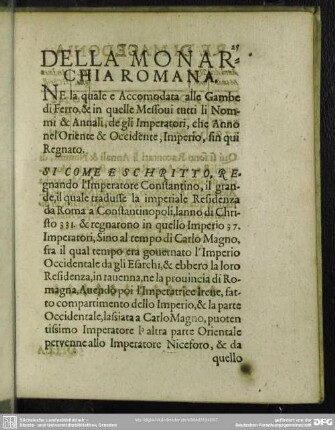 25
DELLA MONAR-
CHIA ROMANA.
NE la quale e Accomodata alle Gambe
di Ferro, & in quelle Messoui tutti li Nom-
mi & Annali, de gli Imperatori, che Anno
nel'Oriente & Occidente, Imperio, sin qui
Regnato.
SI COME E SCHRITTO, RE-
gnando l'Imperatore Constantino, il gran-
de, il quale tradusse la imperiale Residenza
da Roma a Constantinopoli, lanno di Chri-
sto 333. & regnarono in quello Imperio 37.
Imperatori, Sino al tempo di Carlo Magno,
fra il qual tempo era gouernato l'Imperio
Occidentale da gli Esarchi, & ebbero la loro
Residenza, in rauenna, ne la prouincia di Ro-
magna, Auendo poi l'Imperatrice Irene, fat-
to compartimento dello Imperio, & la parte
Occidentale, lassiata a Carlo Magno, puoten
tissimo Imperatore l'altra parte Orientale
peruenne allo Imperatore Niceforo, & da
quello